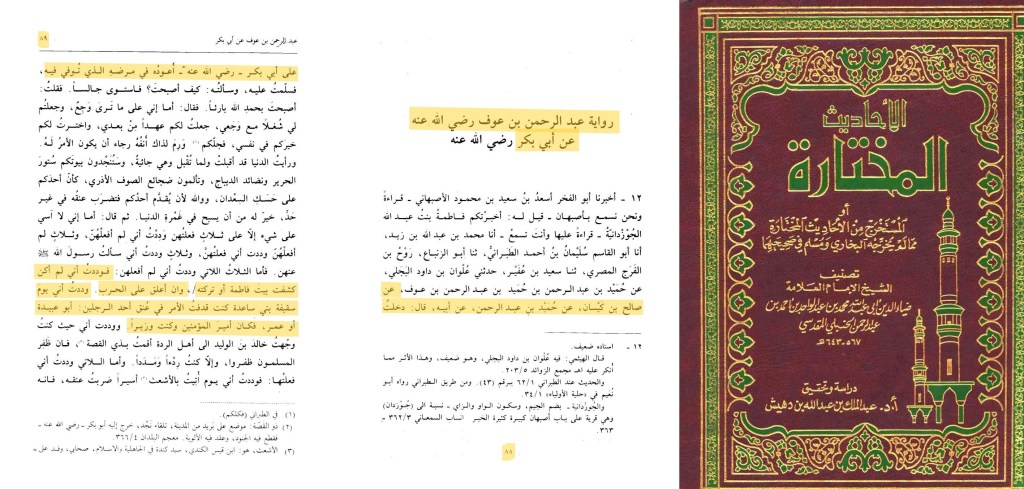 الأحاديث
المختارة
أو
المستخرج من الأحاديث المختارة
مما لم يخرجه البخاري ومسلم في صحيحيهما
تصنيف
الشيخ الإمام العلامة
ضياء الدين أبي عبد الله محمد بن عبد الواحد بن أحمد بن
عبد الرحمن الحنبلي المقدسي
٥٦٧ - ٦٤٣هـ
دراسة وتحقيق
أ.د. عبد الملك بن عبد الله بن دهيش
رواية عبد الرحمن بن عوف رضي الله عنه
عن أبي بكر رضي الله عنه
١٢ - أخبرنا أبو الفخر أسعدُ بنُ سعيد بن محمود الأصبهاني - قراءةً
ونحن نسمع بأصبهان - قيل له: أخبرتكم فاطمةُ بنتُ عبد الله
الجُوْزْدَانِيَّةُ - قراءةً عليها وأنت تسمعُ - أنا محمد بن عبد الله بن رِيذَه،
أنا أبو القاسم سُلَيْمَانُ بنُ أحمد الطَبَرانيُّ، ثنا أبو الزنباع، رَوْحُ بن
الفَرَج المصري، ثنا سعيد بن عُفَيْر، حدثني عُلْوان بن داود البجَلي،
عن حُمَيْد بن عبد الرحمن بن حُميد بن عبد الرحمن بن عوف، عن
صالح بن كَيْسان، عن حُمَيْد بن عبد الرحمن، عن أبيه، قال: دخلتُ
١٢ - اسناده ضعيف.
قال الهيثمي: فيه عُلْوان بن داود البجلي، وهو ضعيف، وهذا الأثر مما
أنكر عليه اهـ مجمع الزوائد ٢٠٣/٥.
والحديث عند الطبراني ٦٢/١ برقم (٤٣). ومن طريق الطبراني رواه أبو
نُعيم في (حلية الأولياء) ٣٤/١.
والجُوزْدانية - بضم الجيم، وسكون الواو والزاي - نسبة الى (جُوْزدَان)
وهي قرية على باب أصبهان كبيرة كثيرة الخير انساب السمعاني ٣٦٢/٣ -
٣٦٣.
٨٨
عبد الرحمن بن عوف عن أبي بكر
٨٩
على أبي بكر - رضي الله عنه - أعودُه في مرضه الذي تُوفي فيه،
فسلّمتُ عليه، وسألتُه: كيف أصبحتَ؟ فاستوى جالساً. فقلتُ:
أصبحتَ بحمدِ الله بارئاً. فقال: أما إني على ما تَرى وَجِعٌ، وجعلتُم
لي شُغلاً مع وَجَعي، جعلتُ لكم عهداً مِنْ بعدي، واخترتُ لكم
خيركم في نفسي، فجلّكم (١) وَرِمَ لذاك أنْفُهُ رجاء أن يكون الأمرُ لَهُ.
ورأيتُ الدنيا قد أقبلتْ ولما تُقْبِل وهي جائيةٌ، وستُنَجِّدون بيوتَكم سُتورَ
الحرير ونضائد الديباج، وتألمون ضجائع الصوف الأذري، كأنّ أحدَكم
على حَسَكِ السعْدان، ووالله لأن يُقدَّم أحدُكم فتضرب عنقه في غير
حَدٍّ، خيرٌ له من أن يسيح في غَمْرة الدنيا. ثم قال: أما إني لا آسي
على شيء إلّا على ثلاثٍ فعلتُهن ودِدتُ أني لم أفعلْهُنّ، وثلاثٍ لم
أفعلهُنّ وددتُ أني فعلتهُنّ، وثلاثٍ وددتُ أني سألتُ رسول الله ﷺ
عنهن. فأما الثلاثُ اللاتي وددتُ أني لم أفعلهن: فوددتُ أني لم أكن
كشفت بيت فاطمة أو تركتُه، وان أغلق على الحرب. وددتُ أني يوم
سقيفة بني ساعدة كنت قذفتُ الأمر في عُنق أحد الرجلين: أبو عبيدة
أو عمر، فكان أميرَ المؤمنين وكنت وزيراً. ووددت أني حيث كنتُ
وجّهتُ خالد بن الوليد الى أهل الردة أقمتُ بذي القصة (٢)، فإن ظفر
المسلمون ظفروا، وإلّا كنتُ رِدْءاً ومَدَداً. وأما اللاتي وددتُ أني
فعلتها: فوددتُ أني يوم أُتِيْتُ بالأشعث (٣) أسيراً ضربتُ عنقه، فانه
(١) في الطبراني (فكلكم).
(٢) ذو القصّة: موضع على بَريد من المدينة، تلقاء نَجْد، خرج إليه أبو بكر - رضي الله عنه -
فقطع فيه الجنود، وعقد فيه الألوية. معجم البلدان ٣٦٦/٤.
(٣) الأشعث، هو: ابن قيس الكندي، سيد كندة في الجاهلية والاسلام، صحابي، وفد على -